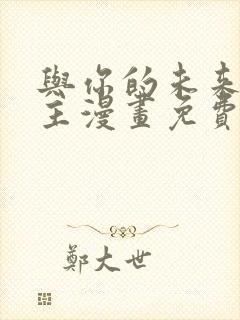 與你的未來
主漫畫免費
鄭大世